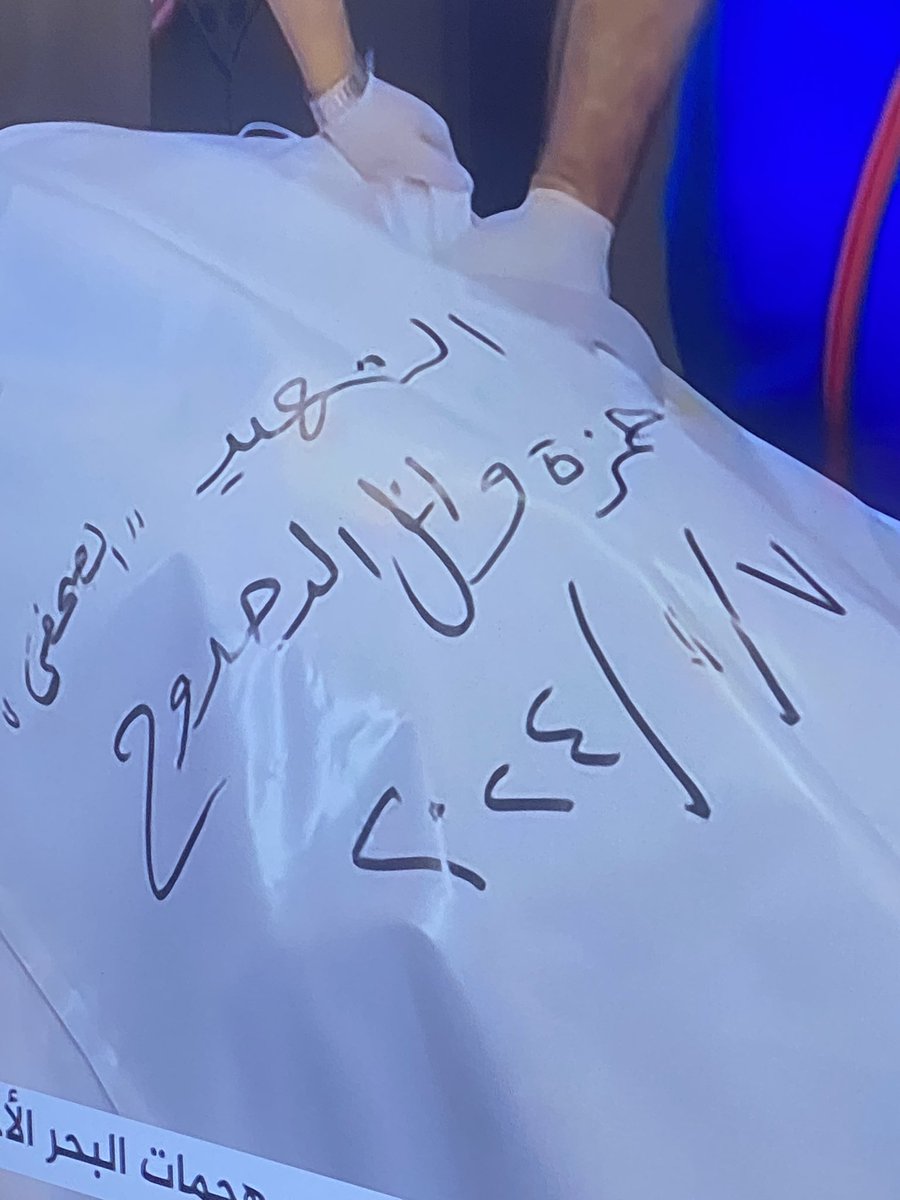 الشهيد
حمزة وائل الدحدوح
"الصحفي"
٢٠٢٤/١/٧
هجمات البحر الأ